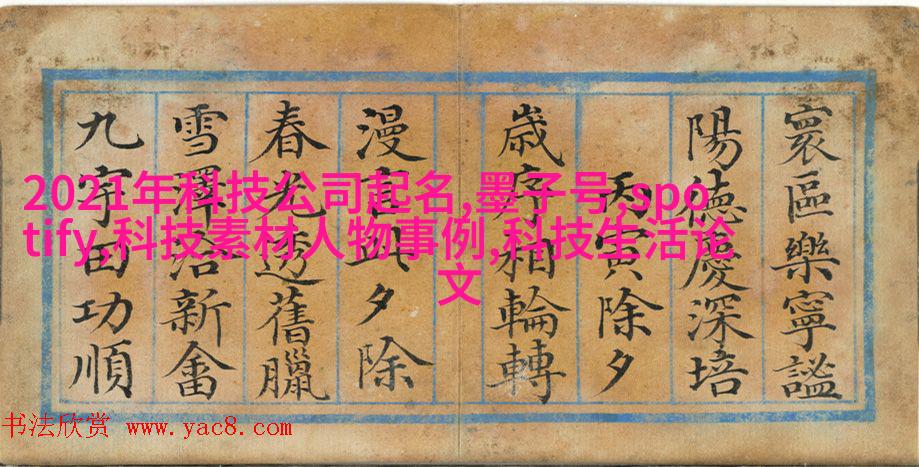 寰區樂寧謐
陽德慶深培
丙寅除夕
歲序相輪轉
漫言此夕除
春光透舊臘
雪澤洽新畬
九宇田功順
2021年科技公司起名,墨子号,spo
tify,科技素材人物事例,科技生活论
文
书法欣赏 www.yac8.com